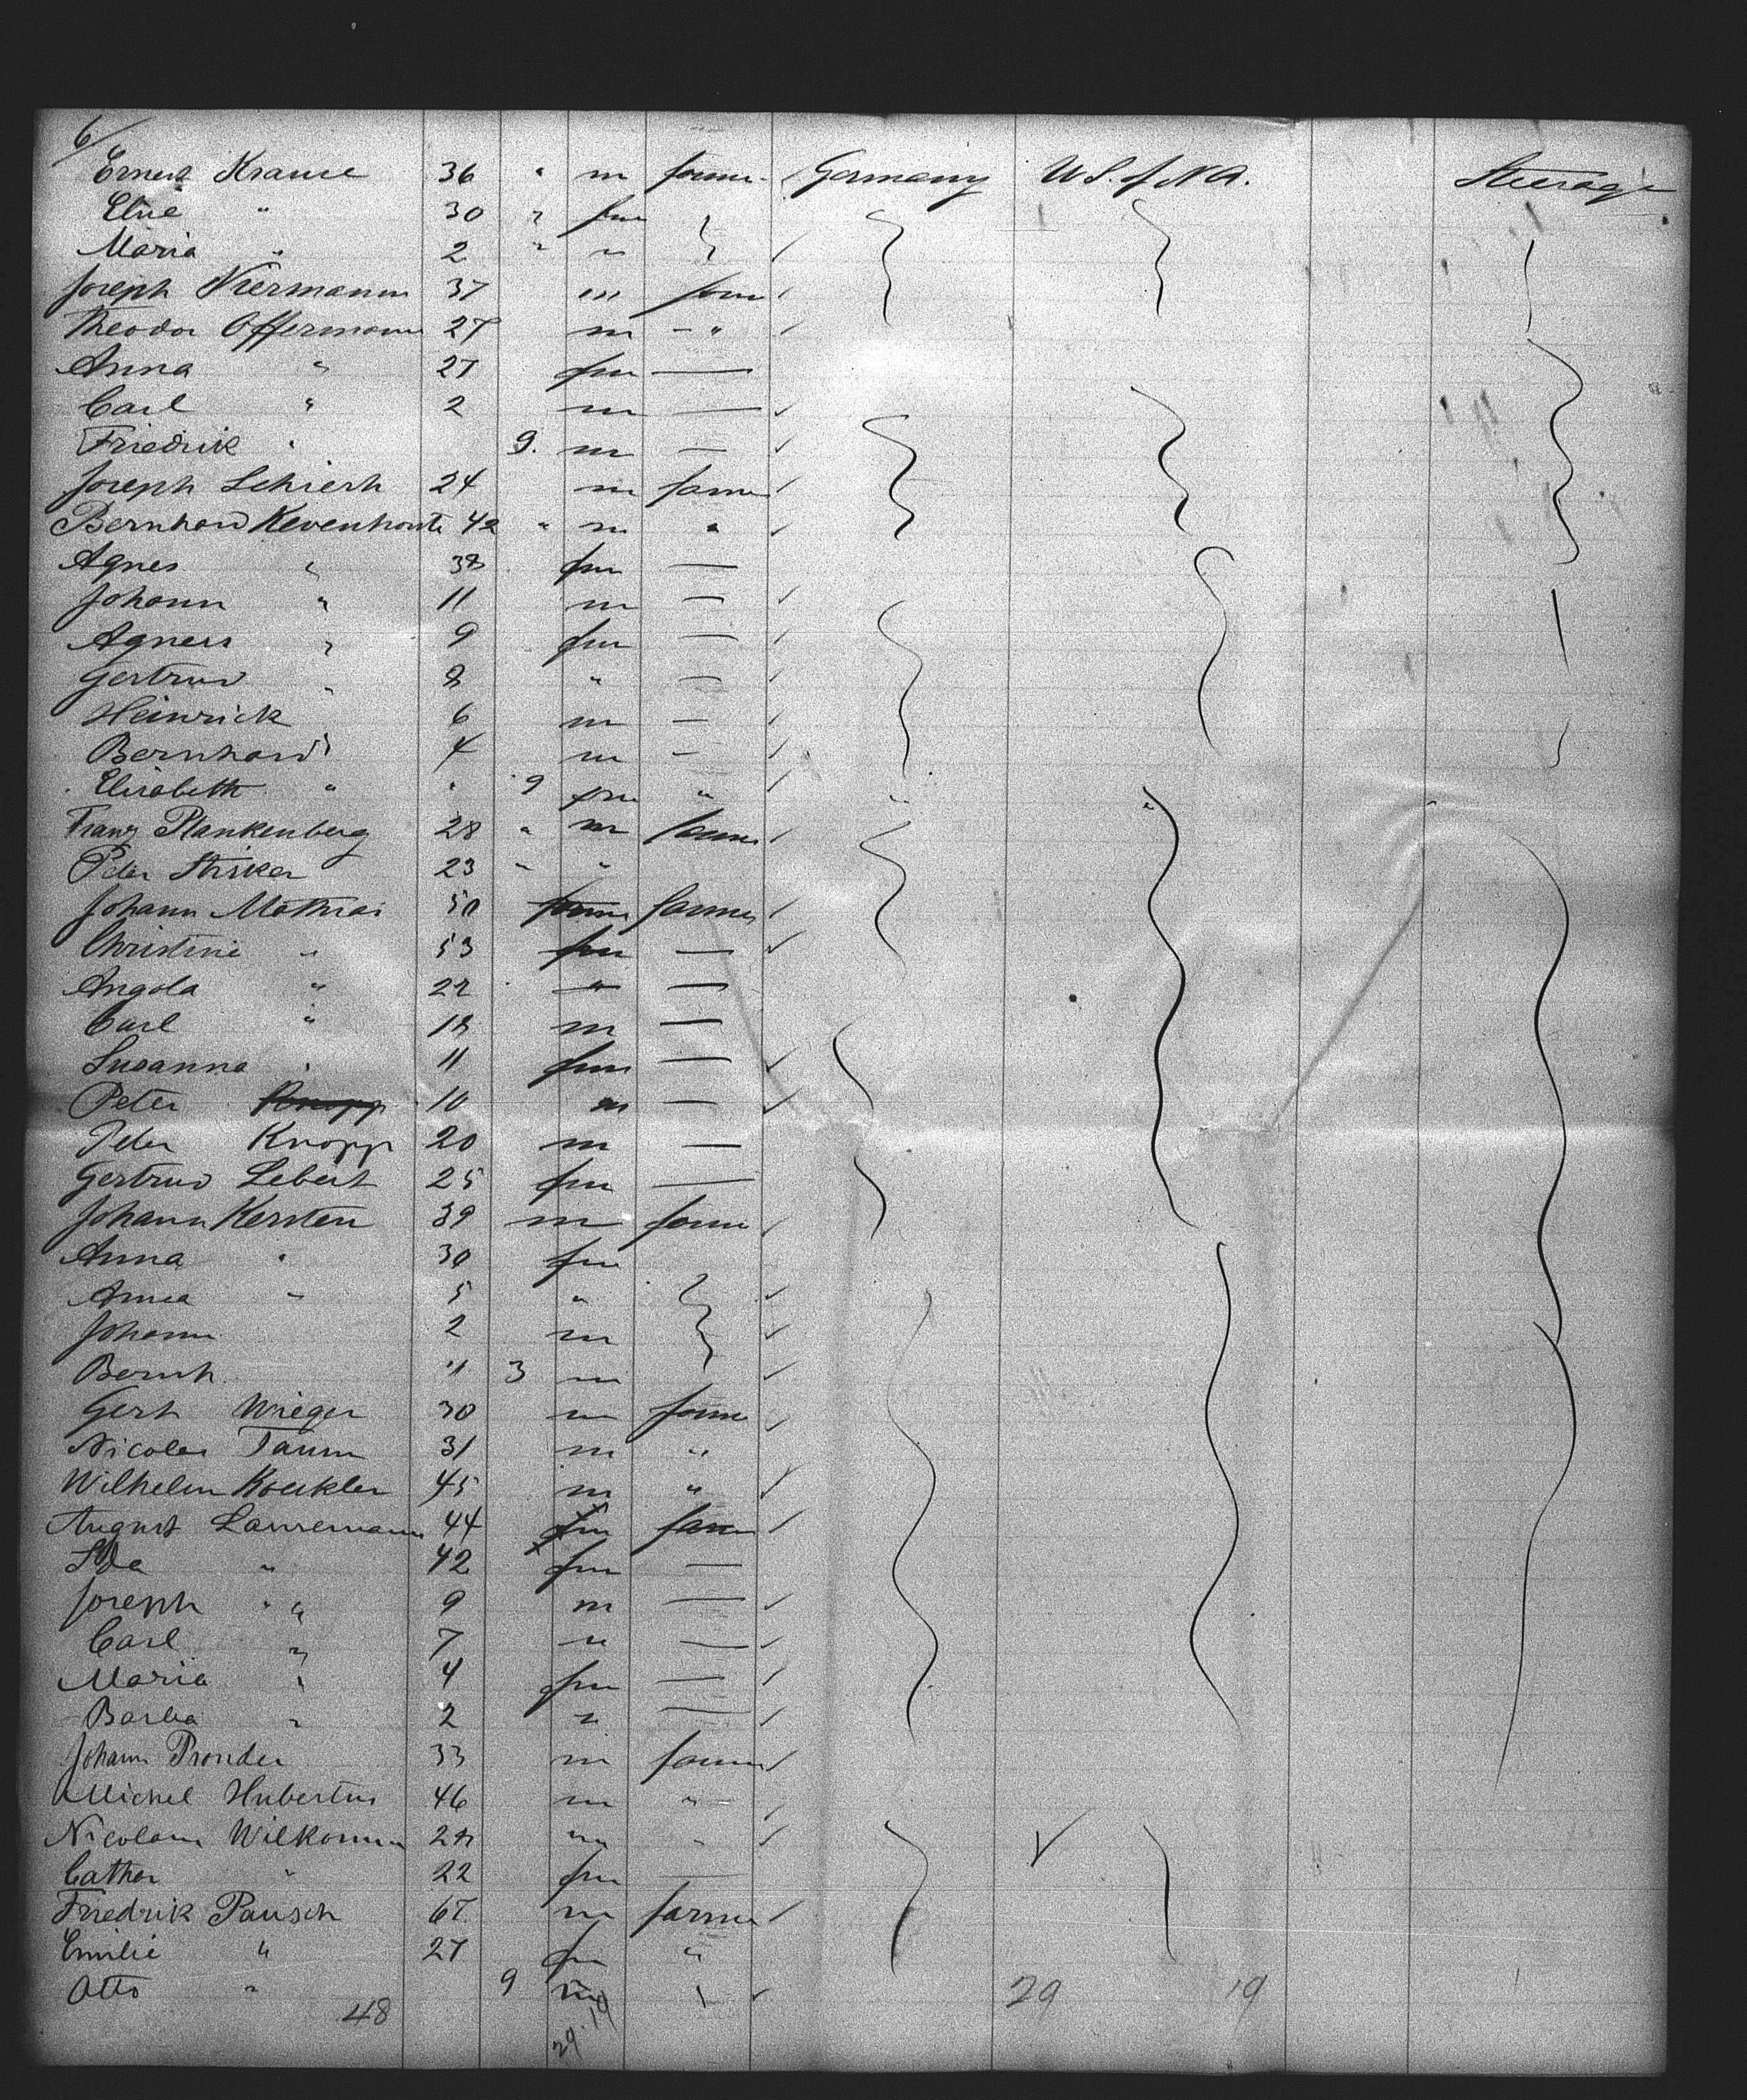 6/
Ernest Krause 36 " m farmer Germany U S. of N A. Steerage
Elise " 30 " fm
Maria " 2 " "
Joseph Niermann 37 m farm
Theodor Offermann 27 m - "
Anna " 27 fm —
Carl " 2 m —
Friedrik " 9. m —
Joseph Schiesh 24 m farmer
Bernhard Kevenhorte 42 " m "
Agnes " 38 fm —
Johann " 11 m —
Agness " 9 fm —
Gertrud " 8 " —
Heinrick 6 m —
Bernhard " 4 m -
Elisabeth " " 9 fm "
Franz Plankenberg 28 " m farmer
Peter Striker 23 " "
Johann Mathias 50 farmer
Christine " 53 fm —
Angela " 22 " —
Carl " 18 m —
Susanna " 11 fm —
Peter Knopp 10 m —
Peter Knopp 20 m —
Gertrud Lebert 25 fm —
Johann Kersten 39 m farm
Anna " 30 fm
Anna " 5 "
Johann 2 m
Bernh. " 3 m
Gerh Wieger 30 m farm
Nicolas Taum 31 m "
Wilhelm Koeckler 45 m "
August 44 farm
Ida " 42 fm —
Joseph " 9 m —
Carl " 7 " —
Maria " 4 fm —
Barba " 2 " —
Johann Pronder 33 m farmer
Michel Hubertus 46 m "
Nicolaus Wilkomm 28 m "
Cathar " 22 fm —
Friedrik Pausch 67 m farmer
Emilie " 27 fm "
Otto " 9 m " 29 19
48 29.19